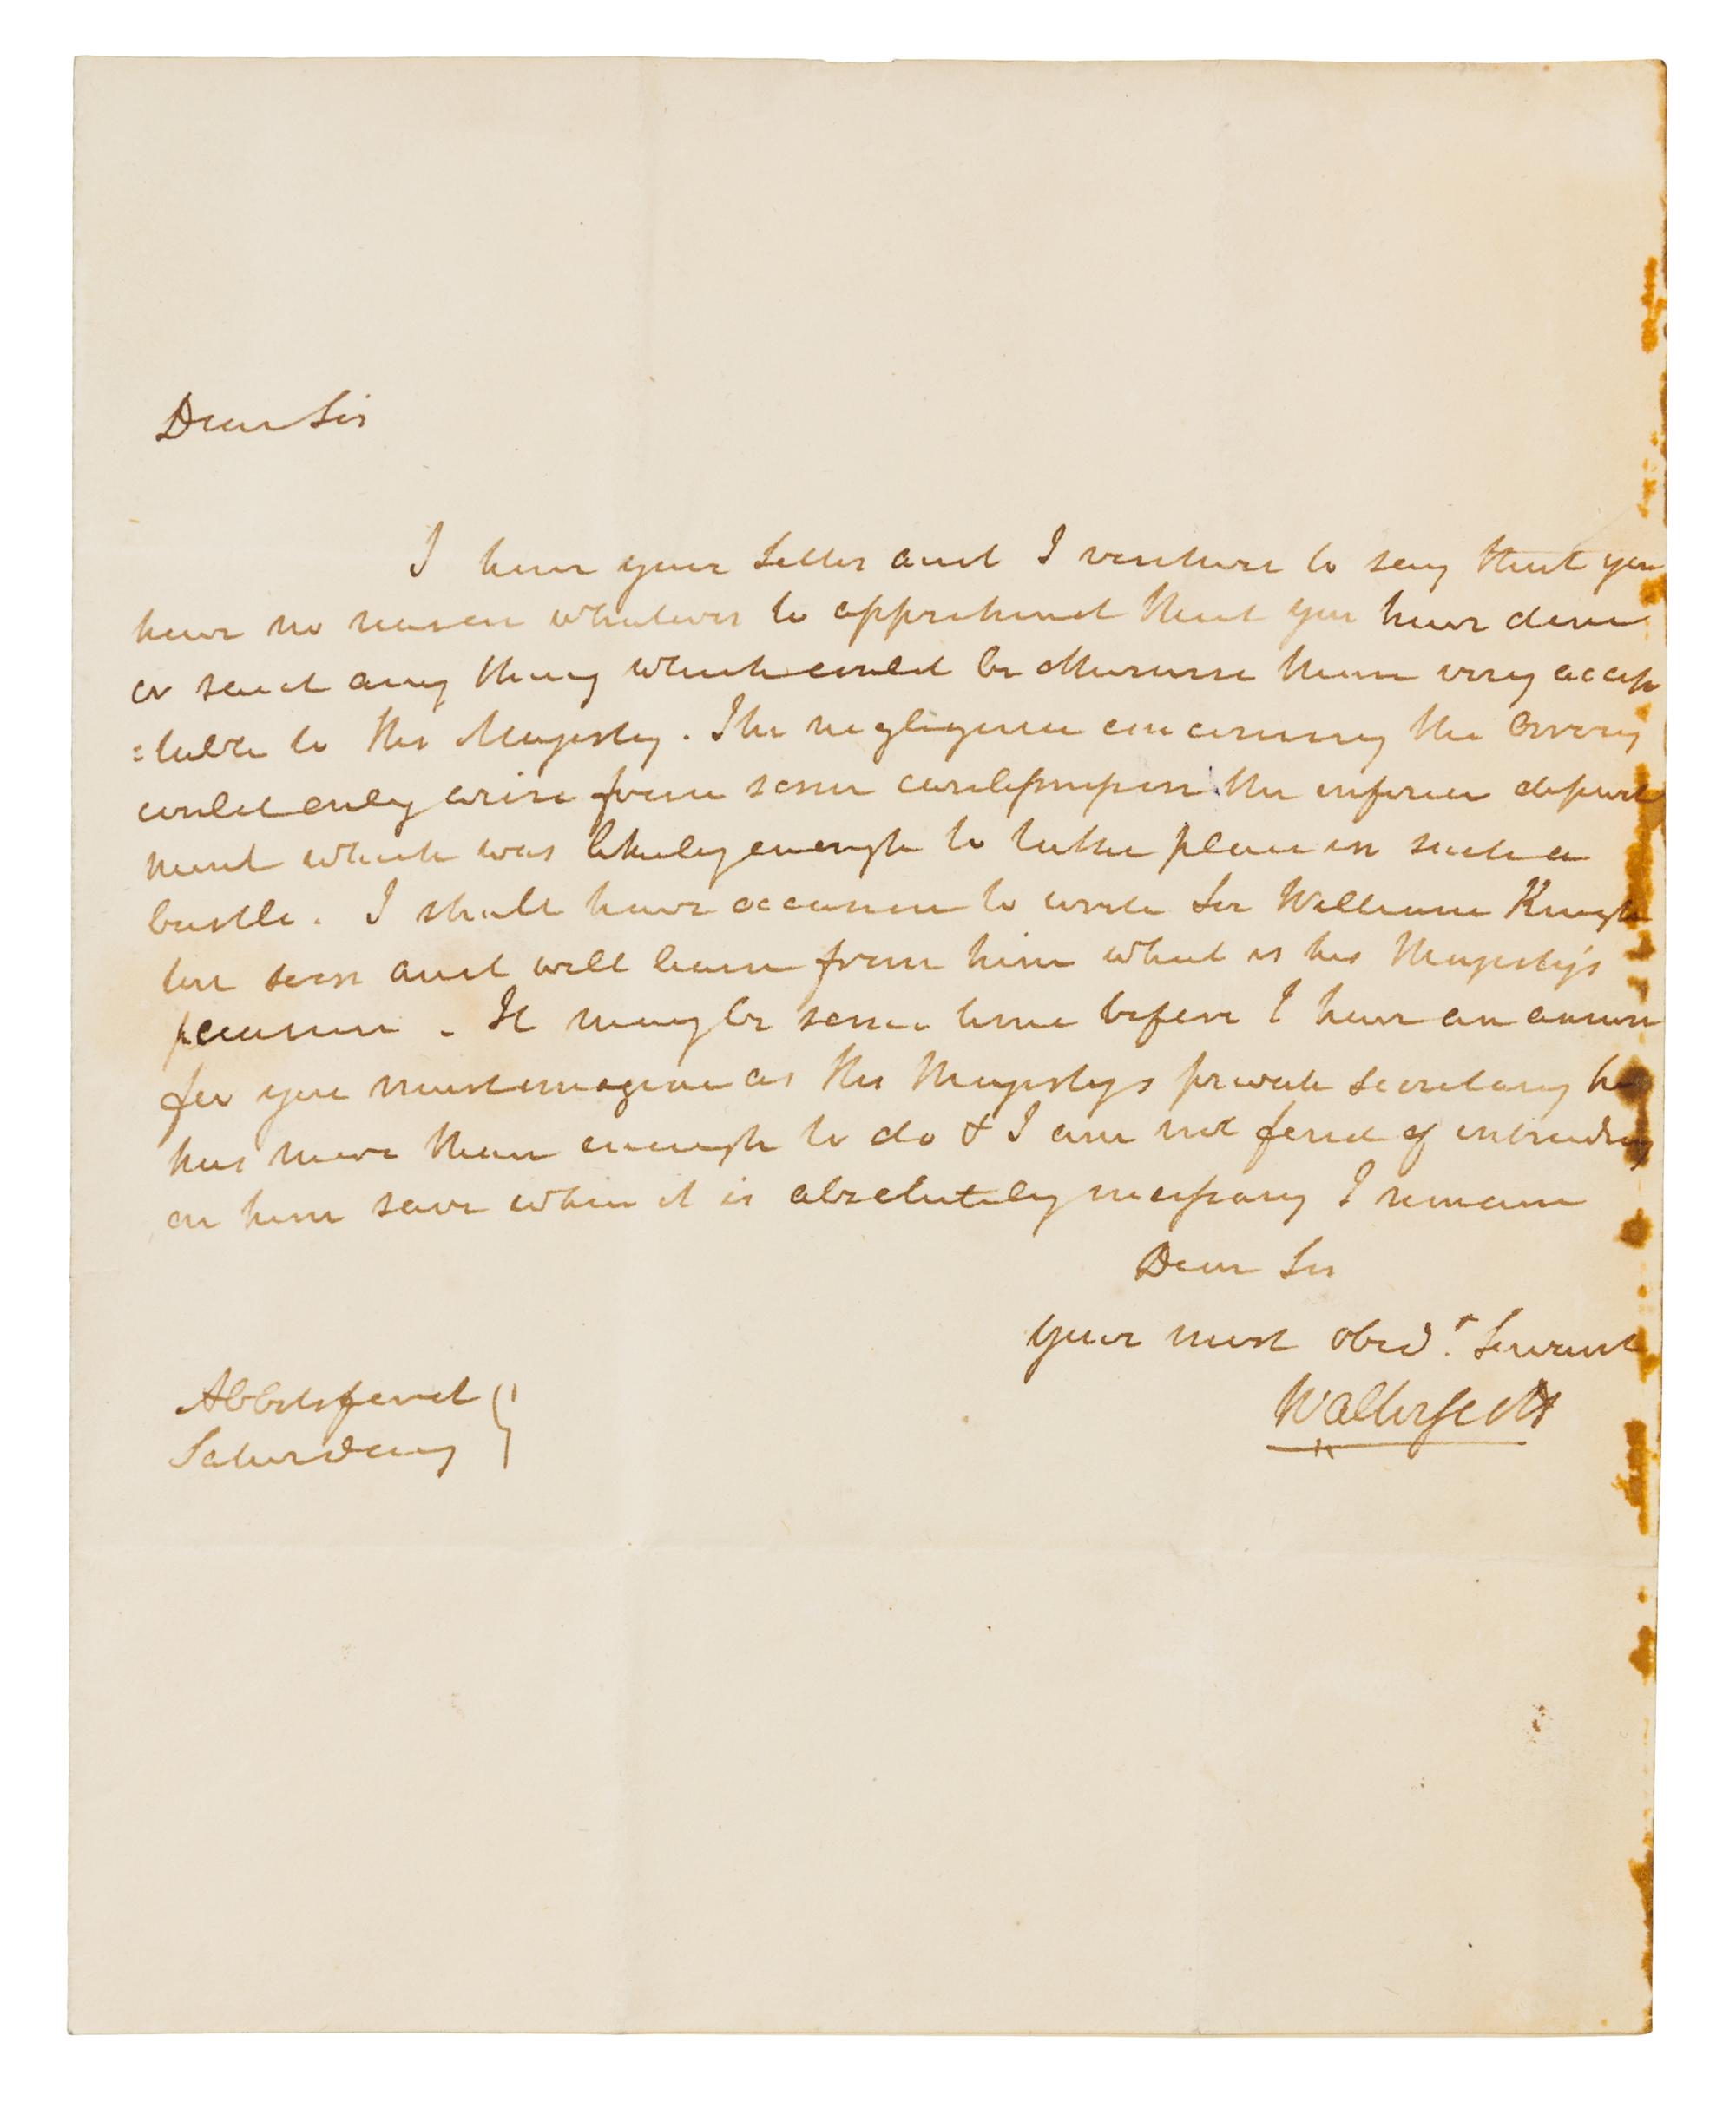 Dear Sir
I have your letter and I venture to say that you
have no reason whatever to apprehend that you have done
or said any thing which could be otherwise than very accep
=table to His Majesty. The negligence concerning the
could only arise from some carelessness in the inferior depart
ment which was likely enough to take place in such a
bustle. I shall have occasion to write Sir William Knigh
ton soon and will learn from him what is his Majesty's
pleasure. It may be some time before I have an answer
for you must imagine as His Majestys private secretary he
has more than enough to do & I am not fond of intruding
on him save when it is absolutely necessary I remain
Dear Sir
your most obedt. Servant
Walter Scott
Abbotsford
Saturday